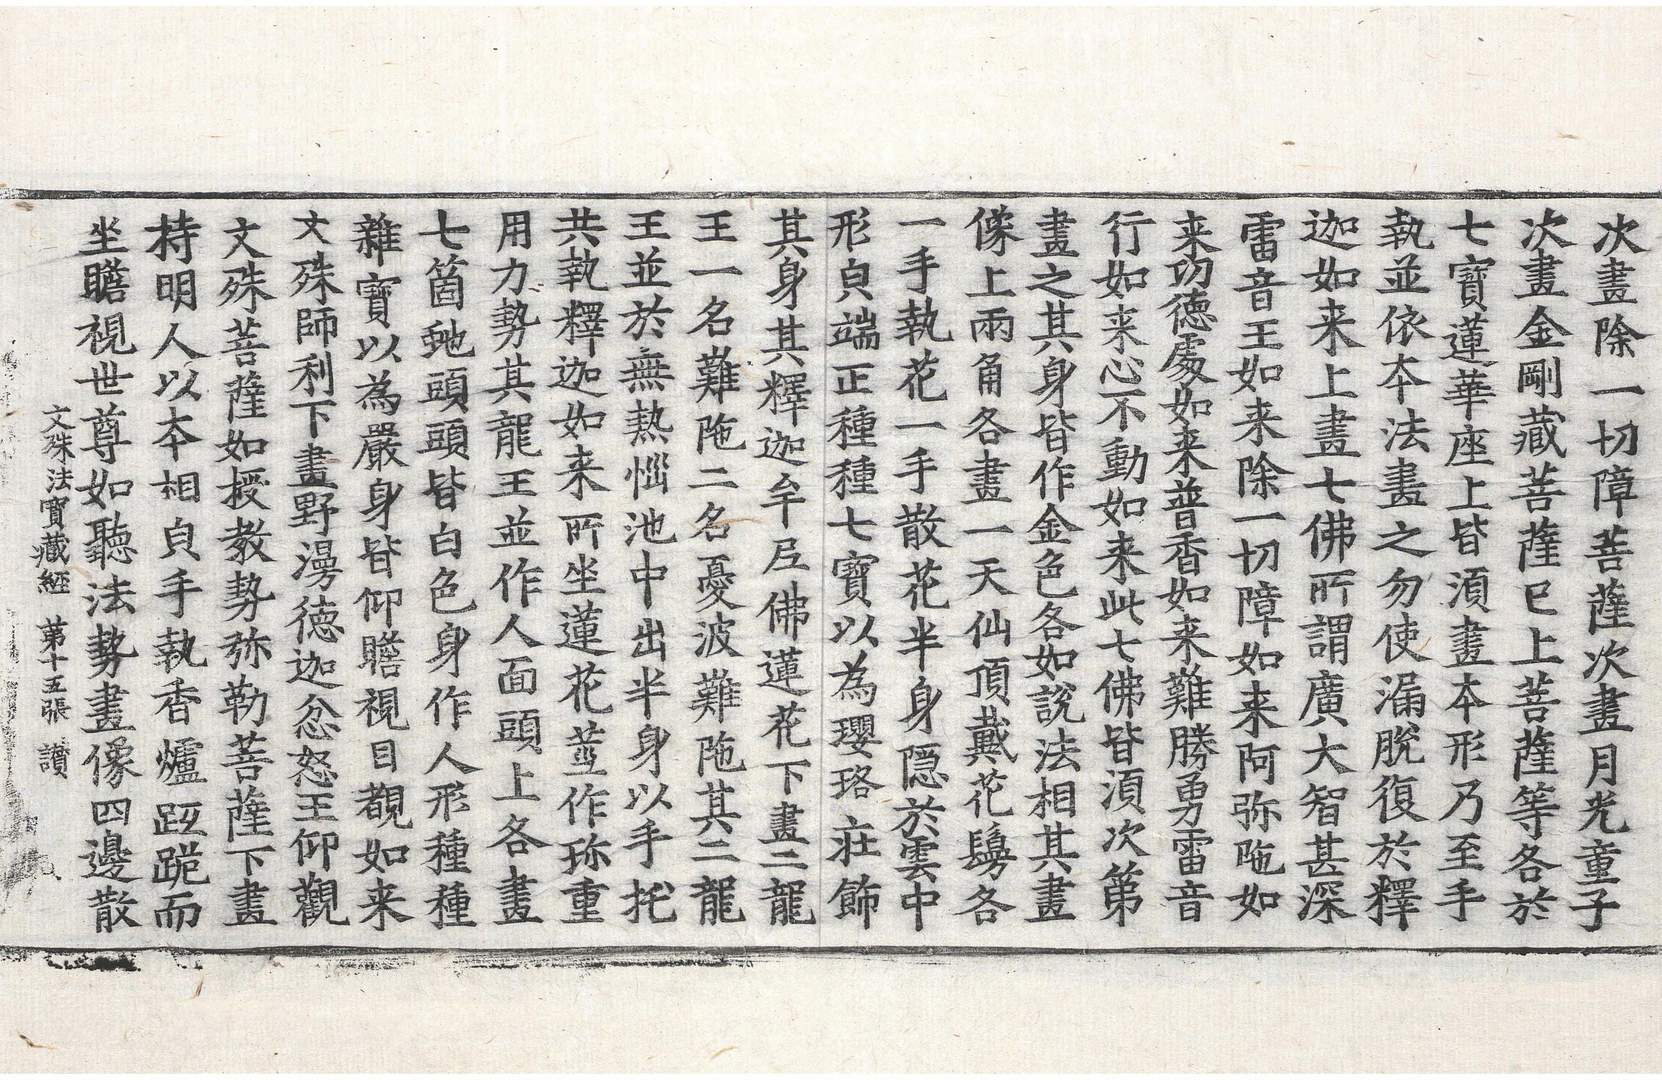 次畫除一切障菩薩次畫月光童子
次畫金剛藏菩薩已上菩薩等各於
七寶蓮華座上皆湏畫本形乃至手
執並依本法畫之勿使漏脫復於釋
迦如来上畫七佛所謂廣大智甚深
雷音王如来除一切障如来阿弥陁如
来功德處如来普香如来難勝勇雷音
行如来心不動如来此七佛皆湏次第
畫之其身皆作金色各如說法相其畫
像上兩角各畫一天仙頂戴花鬘各
一手執花一手散花半身隱於雲中
形皃端正種種七寶以為瓔珞莊飾
其身其釋迦牟尼佛蓮花下畫二龍
王一名難陁二名憂波難陁其二龍
王並於無熱惱池中出半身以手托
共執釋迦如来所坐蓮花莖作珎重
用力勢其龍王並作人面頭上各畫
七箇虵頭頭皆白色身作人形種種
雜寶以為嚴身皆仰瞻視目覩如来
文殊師利下畫野漫德迦忿怒王仰觀
文殊菩薩如授教勢弥勒菩薩下畫
持明人以本相皃手執香爐跪而
坐瞻視世尊如聽法勢畫像四邊散
文殊法寶藏經　第十五張　讃